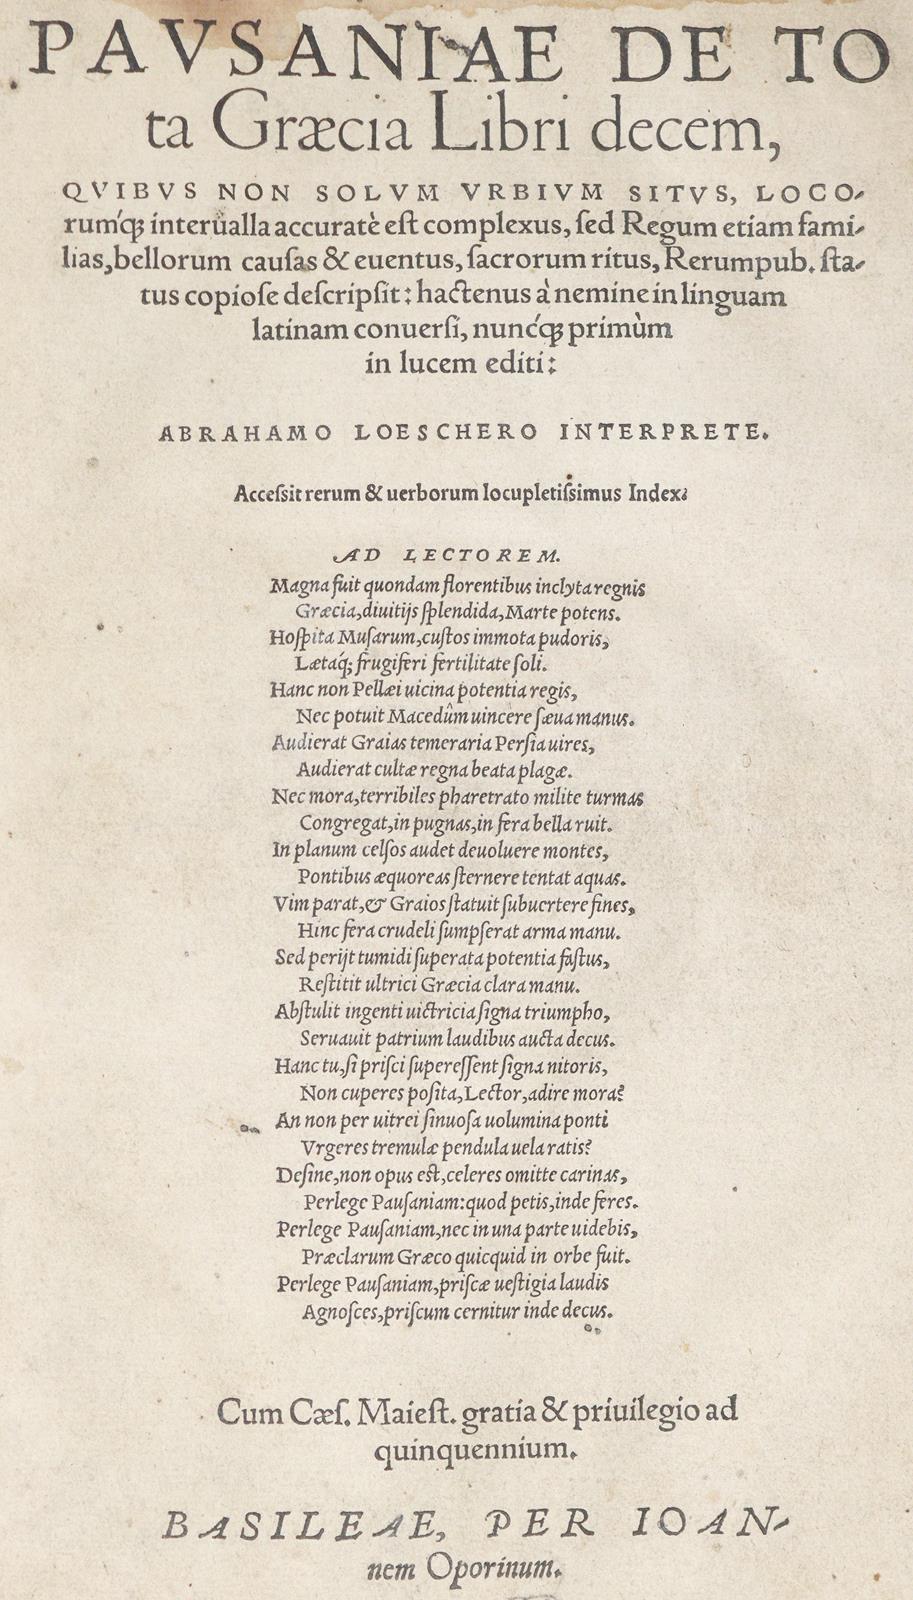 PAVSANIAE DE TO
ta Græcia Libri decem,
QVIBVS NON SOLVM VRBIVM SITVS, LOCO-
rumq́ꝫ interualla accuratè eſt complexus, ſed Regum etiam fami-
lias, bellorum cauſas & euentus, ſacrorum ritus, Rerumpub. ſta-
tus copioſe deſcripſit: hactenus à nemine in linguam
latinam conuerſi, nuncq́ꝫ primùm
in lucem editi:
ABRAHAMO LOESCHERO INTERPRETE.
Acceſsit rerum & uerborum locupletiſsimus Index.
AD LECTOREM.
Magna fuit quondam florentibus inclyta regnis
Græcia, diuitijs ſplendida, Marte potens.
Hoſpita Muſarum, cuſtos immota pudoris,
Lætaq́ꝫ frugiferi fertilitate ſoli.
Hanc non Pellæi uicina potentia regis,
Nec potuit Macedûm uincere ſæua manus.
Audierat Graias temeraria Perſia uires,
Audierat cultæ regna beata plagæ.
Nec mora, terribiles pharetrato milite turmas
Congregat, in pugnas, in fera bella ruit.
In planum celſos audet deuoluere montes,
Pontibus æquoreas ſternere tentat aquas.
Vim parat, & Graios ſtatuit ſubuertere fines,
Hinc fera crudeli ſumpſerat arma manu.
Sed perijt tumidi ſuperata potentia faſtus,
Reſtitit ultrici Græcia clara manu.
Abſtulit ingenti uictricia ſigna triumpho,
Seruauit patrium laudibus aucta decus.
Hanc tu, ſi priſci ſupereſſent ſigna nitoris,
Non cuperes poſita, Lector, adire mora?
An non per uitrei ſinuoſa uolumina ponti
Vrgeres tremulæ pendula uela ratis?
Deſine, non opus eſt, celeres omitte carinas,
Perlege Pauſaniam: quod petis, inde feres.
Perlege Pauſaniam, nec in una parte uidebis,
Præclarum Græco quicquid in orbe fuit.
Perlege Pauſaniam, priſcæ ueſtigia laudis
Agnoſces, priſcum cernitur inde decus.
Cum Cæſ. Maieſt. gratia & priuilegio ad
quinquennium.
BASILEAE, PER IOAN-
nem Oporinum.